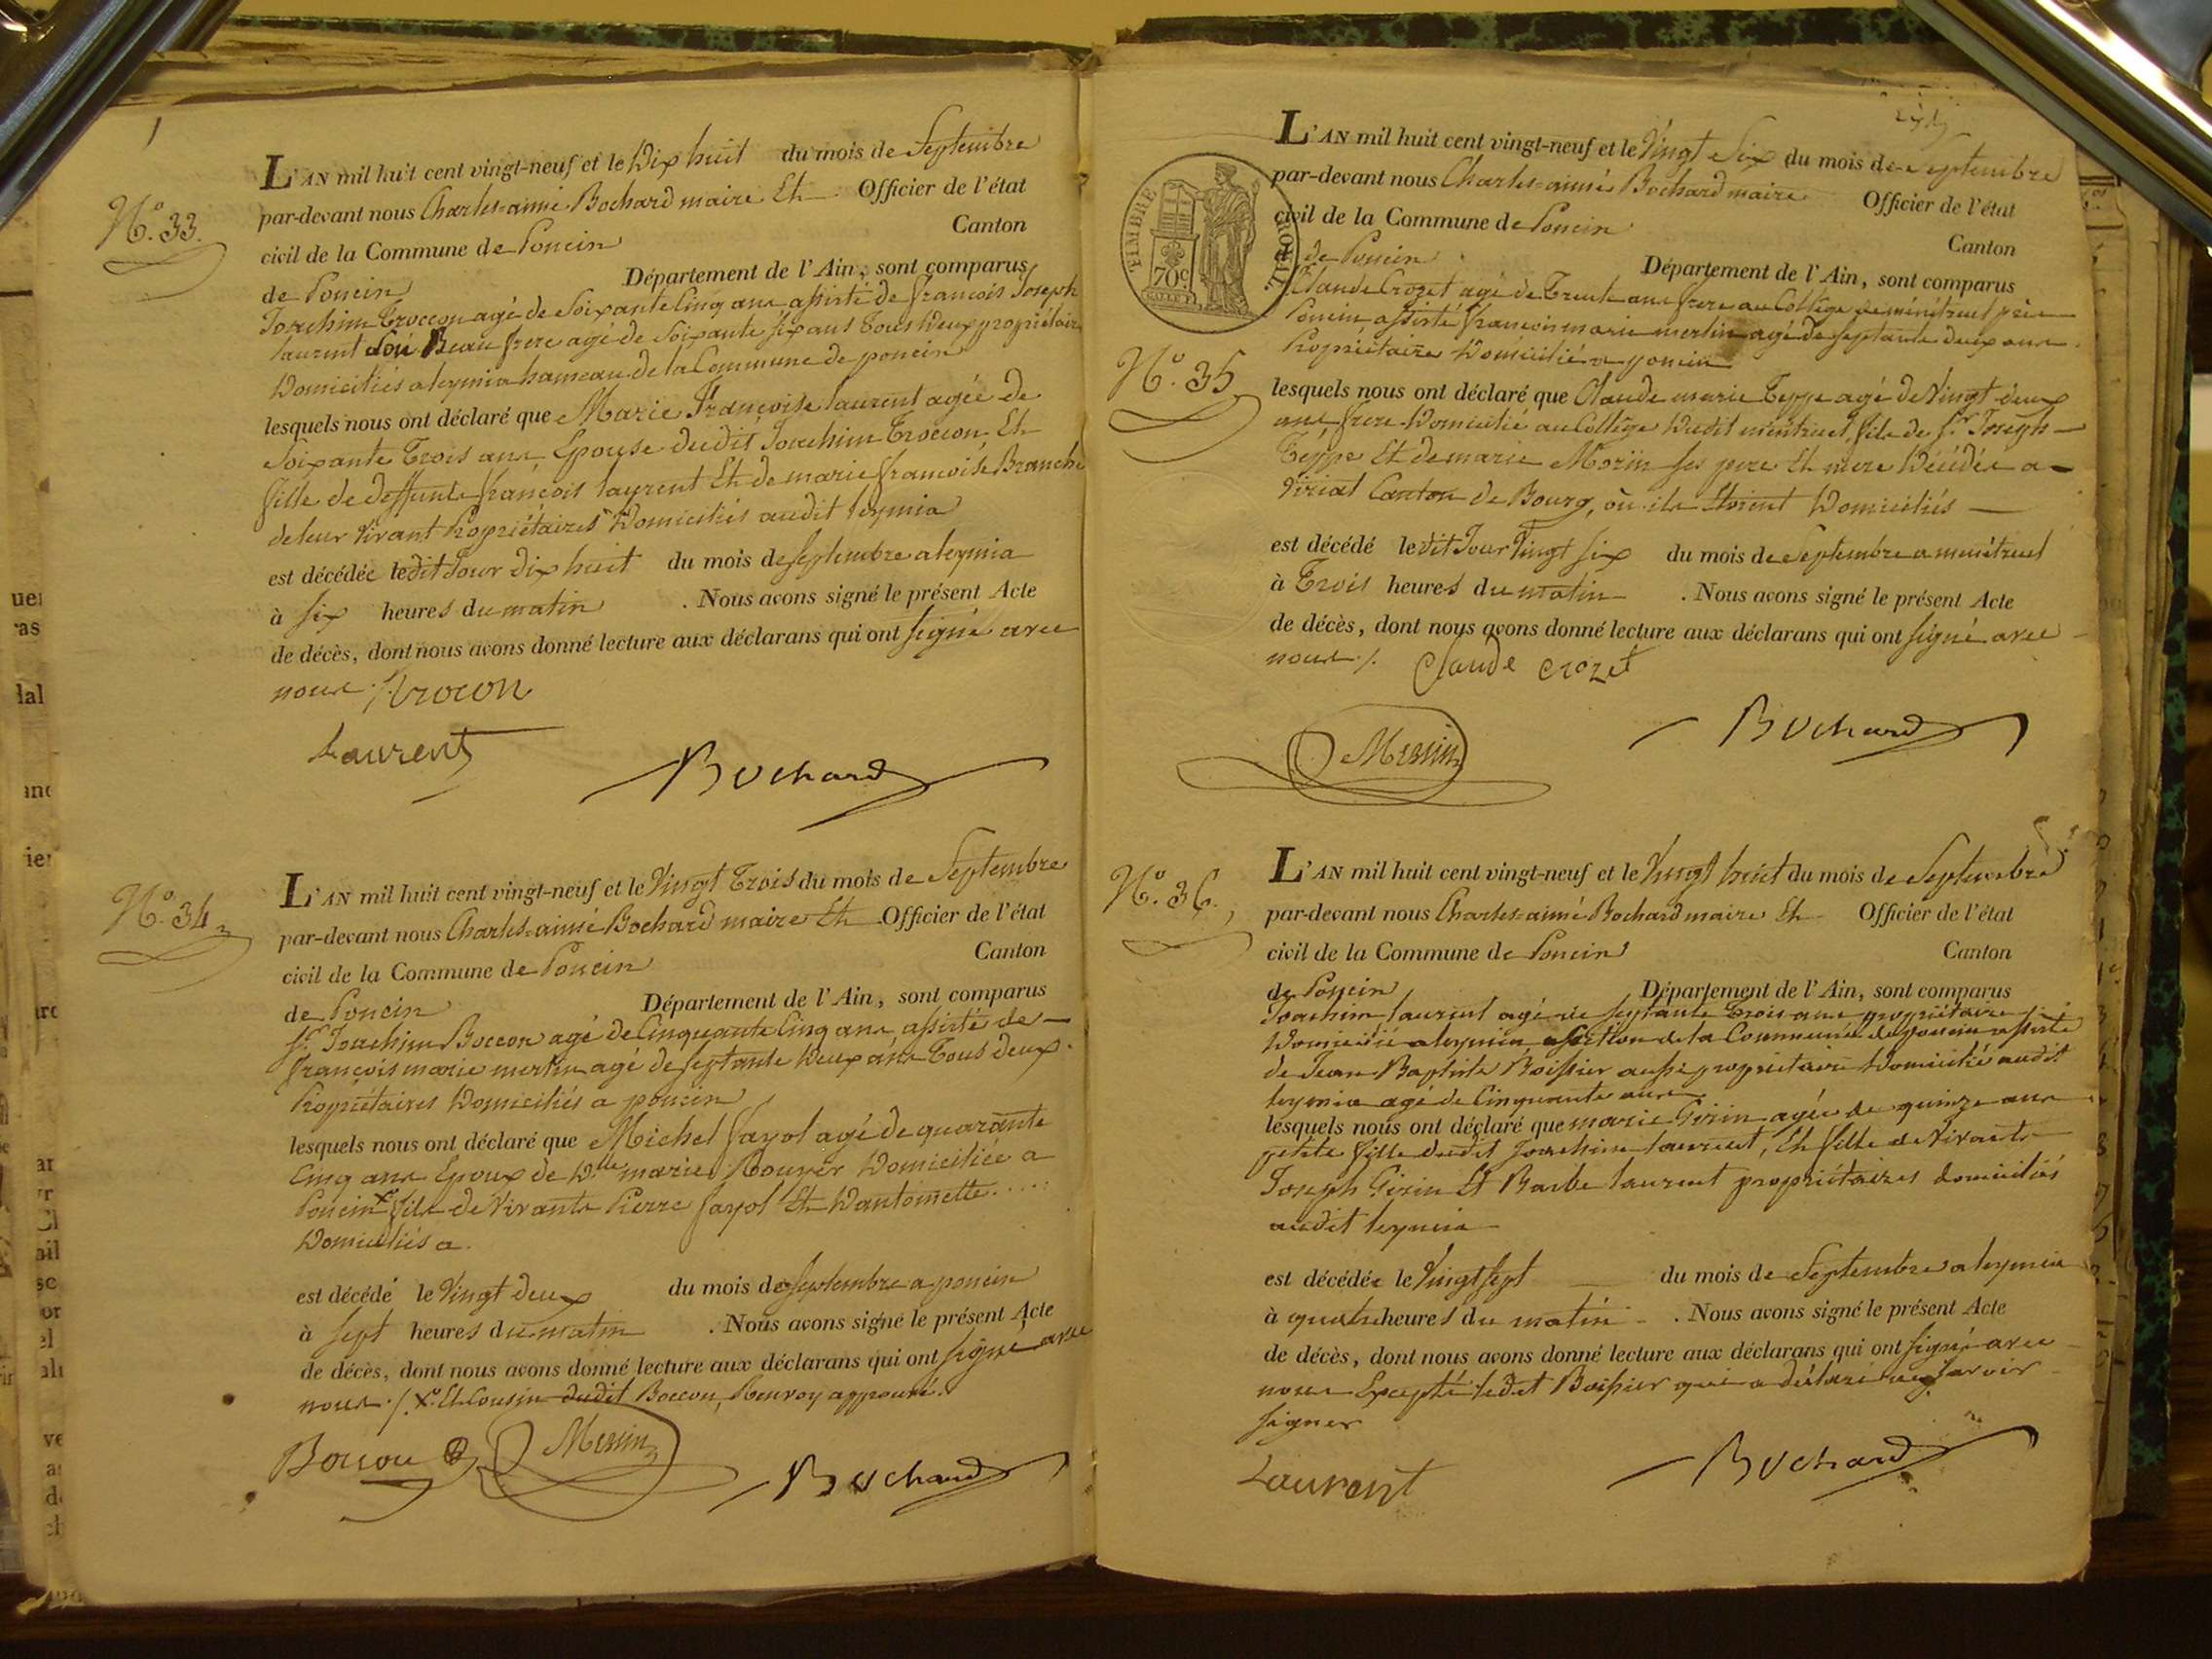 1
N.o 33.
L'AN mil huit cent vingt-neuf et le Dix huit du mois de Septembre
par-devant nous Charles=aimé Bochard maire Et Officier de l'état
civil de la Commune de Poncin Canton
de Poncin Département de l'Ain, sont comparus
Joachim Troccon agé de Soixante Cinq ans assisté de francois Joseph
laurent son Beau frere agé de Soixante six ans Tous Deux propriétaires
Domiciliés a leymia hameau de la Commune de poncin
lesquels nous ont déclaré que Marie Françoise laurent agée de
Soixante Trois ans Epouse dudit Joachim Troccon Et
fille de deffunts françois laurent Et de marie francoise Branche
de leur Vivant Propriétaires Domiciliés audit leymia
est décédée ledit Jour Dix huit du mois de septembre a leymia
à six heures du matin . Nous avons signé le présent Acte
de décès, dont nous avons donné lecture aux déclarans qui ont signé avec
nous ./. Trocon
Laurent
Bochard
N.o 34
L'AN mil huit cent vingt-neuf et le Vingt Trois du mois de Septembre
par-devant nous Charles=aimé Bochard maire Et Officier de l'état
civil de la Commune de Poncin Canton
de Poncin Département de l'Ain, sont comparus
Sr. Joachim Boccon agé de Cinquante Cinq ans, assisté de
françois marie merlin agé de septante Deux ans Tous deux
Propriétaires Domiciliés a poncin
lesquels nous ont déclaré que Michel fayol agé de quarante
Cinq ans Epoux de Dlle marie Bouyer Domiciliée a
Poncin x fils de Vivants Pierre fayol Et Dantoinette .....
Domiciliés a
est décédé le Vingt deux du mois de septembre a poncin
à sept heures du matin . Nous avons signé le présent Acte
de décès, dont nous avons donné lecture aux déclarans qui ont signé avec
nous ./. x Et Cousin dudit Boccon, Renvoy approuvé.
Boccon
Merlin
Bochard
TIMBRE ROYAL
70c.
N.o 35
L'AN mil huit cent vingt-neuf et le Vingt Six du mois de Septembre
par-devant nous Charles=aimé Bochard maire Officier de l'état
civil de la Commune de Poncin Canton
de Poncin Département de l'Ain, sont comparus
Claude Crozet agé de Trente ans frere au College de ménétruel près
Poncin assisté francois marie merlin agé de septante deux ans
Propriétaire Domicilié a poncin
lesquels nous ont déclaré que Claude marie Teppe agé de Vingt deux
ans frere Domicilié au College Dudit ménétruel, fils de Sr Joseph
Teppe Et de marie Morin ses pere Et mere Décédés a
Viriat Canton de Bourg, où ils Etoient Domiciliés
est décédé ledit Jour Vingt six du mois de Septembre a menétruel
à Trois heures du matin . Nous avons signé le présent Acte
de décès, dont nous avons donné lecture aux déclarans qui ont signé avec
nous ./. Claude crozet
Merlin
Bochard
N.o 36.
L'AN mil huit cent vingt-neuf et le Vingt huit du mois de Septembre
par-devant nous Charles=aimé Bochard maire Et Officier de l'état
civil de la Commune de Poncin Canton
de Poncin Département de l'Ain, sont comparus
Joachim laurent agé de septante Trois ans propriétaire
Domicilié a leymia Section de la Commune de poncin assisté
de Jean Baptiste Boissier aussi propriétaire Domicilié audit
leymia agé de Cinquante ans
lesquels nous ont déclaré que marie Girin agée de quinze ans
petite fille dudit Joachim laurent, Et fille de Vivants
Joseph Girin Et Barbe laurent propriétaires domiciliés
audit leymia
est décédée le Vingt sept du mois de Septembre a leymia
à quatre heures du matin . Nous avons signé le présent Acte
de décès, dont nous avons donné lecture aux déclarans qui ont signé avec
nous Excepté ledit Boissier qui a déclaré ne savoir
signer
Laurent
Bochard